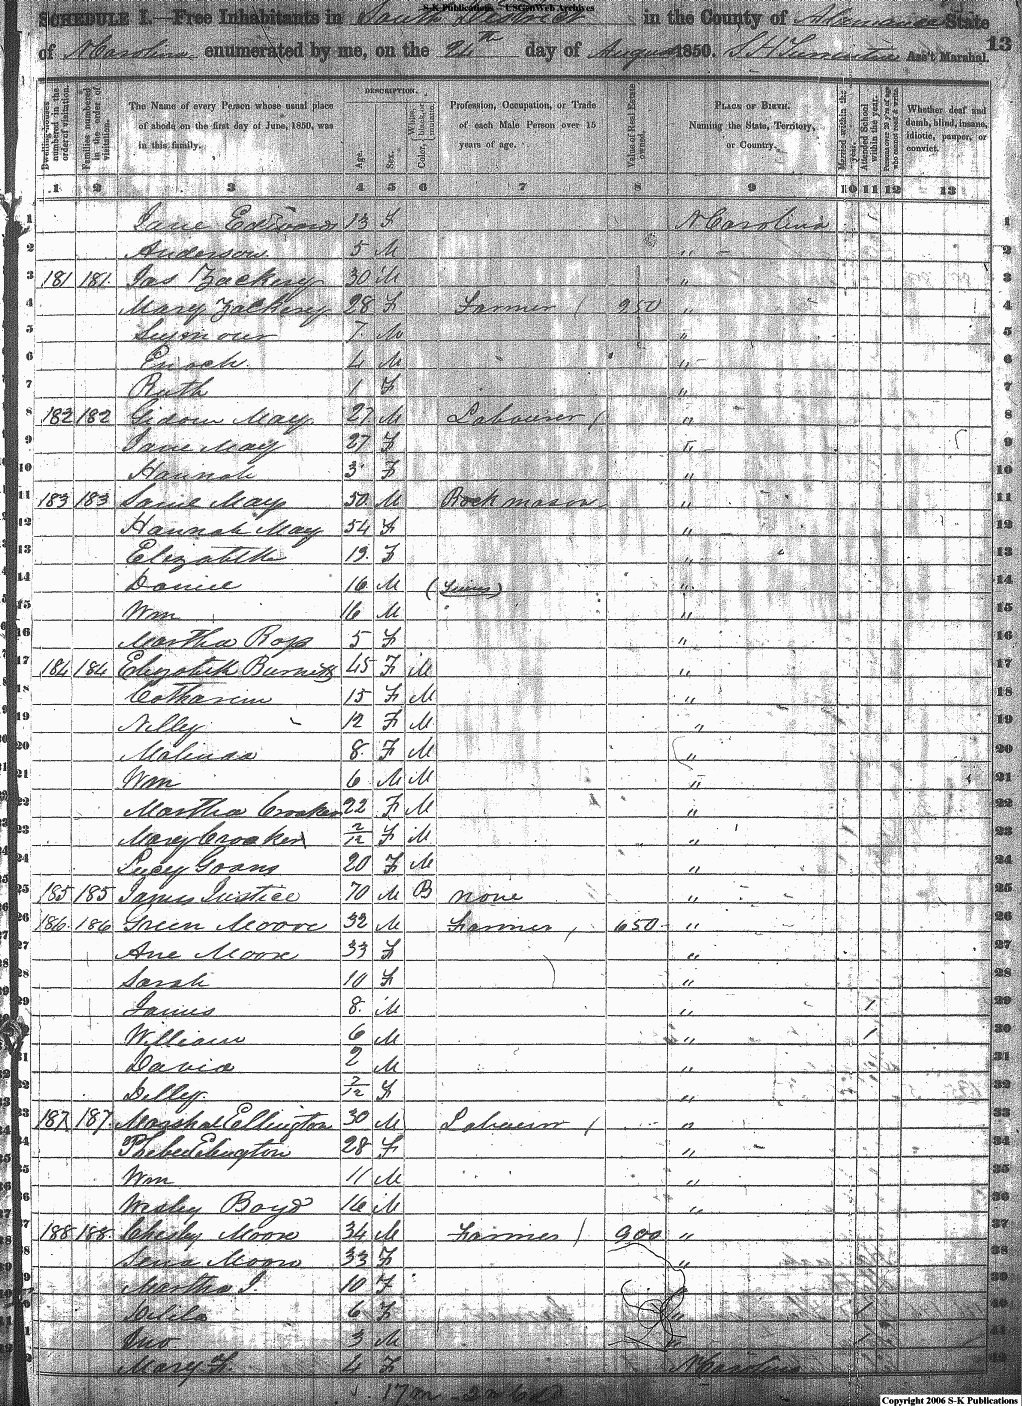 S-K Publications - USGenWeb Archives
SCHEDULE I.—Free Inhabitants in South District in the County of Alamance State
of N Carolina enumerated by me, on the 26th day of August 1850. S H Turrentine Ass't Marshal. 13
Dwelling-houses numbered in the order of visitation.
Families numbered in the order of visitation.
The Name of every Person whose usual place of abode on the first day of June, 1850, was in this family.
DESCRIPTION.
Age.
Sex.
Color, White, black, or mulatto.
Profession, Occupation, or Trade of each Male Person over 15 years of age.
Value of Real Estate owned.
PLACE OF BIRTH. Naming the State, Territory, or Country.
Married within the year.
Attended School within the year.
Persons over 20 y'rs of age who cannot read & write.
Whether deaf and dumb, blind, insane, idiotic, pauper, or convict.
1 2 3 4 5 6 7 8 9 10 11 12 13
1 Jane Edwards 13 F N Carolina 1
2 Anderson 5 M " 2
3 181 181 Jas Zackery 30 M " 3
4 Mary Zackery 28 F Farmer / 250 " 4
5 Seymour 7 M " 5
6 Enoch 4 M " 6
7 Ruth 1 F " 7
8 182 182 Gidom May 27 M Labourer / " 8
9 Jane May 27 F " 9
10 Hannah 3 F " 10
11 183 183 May 50 M Rock mason " 11
12 Hannah May 54 F " 12
13 Elizabeth 19 F " 13
14 Daniel 16 M (Twins) " 14
15 Wm 16 M " 15
16 Martha Ross 5 F " 16
17 184 184 Elizabeth Burnett 45 F M " 17
18 Catharine 15 F M " 18
19 Nilly 12 F M " 19
20 Malinda 8 F M " 20
21 Wm 6 M M " 21
22 Martha Crooker 22 F M " 22
23 Mary Crooker 2/12 F M " 23
24 Lucy Goans 20 F M " 24
25 185 185 James Justice 70 M B none " 25
26 186 186 Green Moore 32 M Farmer / 650 " 26
27 Ane Moore 33 F " 27
28 Sarah 10 F " 28
29 James 8 M " 1 29
30 William 6 M " 1 30
31 David 2 M " 31
32 Dilley 2/12 F " 32
33 187 187 Marshal Ellington 30 M Labourer / " 33
34 Phebe Ellington 28 F " 34
35 Wm 11 M " 35
36 Wesley Boyd 16 M " 36
37 188 188 Chesley Moore 34 M Farmer / 900 " 37
38 Sena Moore 33 F " 38
39 Martha J. 10 F 39
40 Delila 6 F " 1 40
41 Jno 3 M " 1 41
42 Mary F. 4 F N Carolina 42
17 m
Copyright 2006 S-K Publications